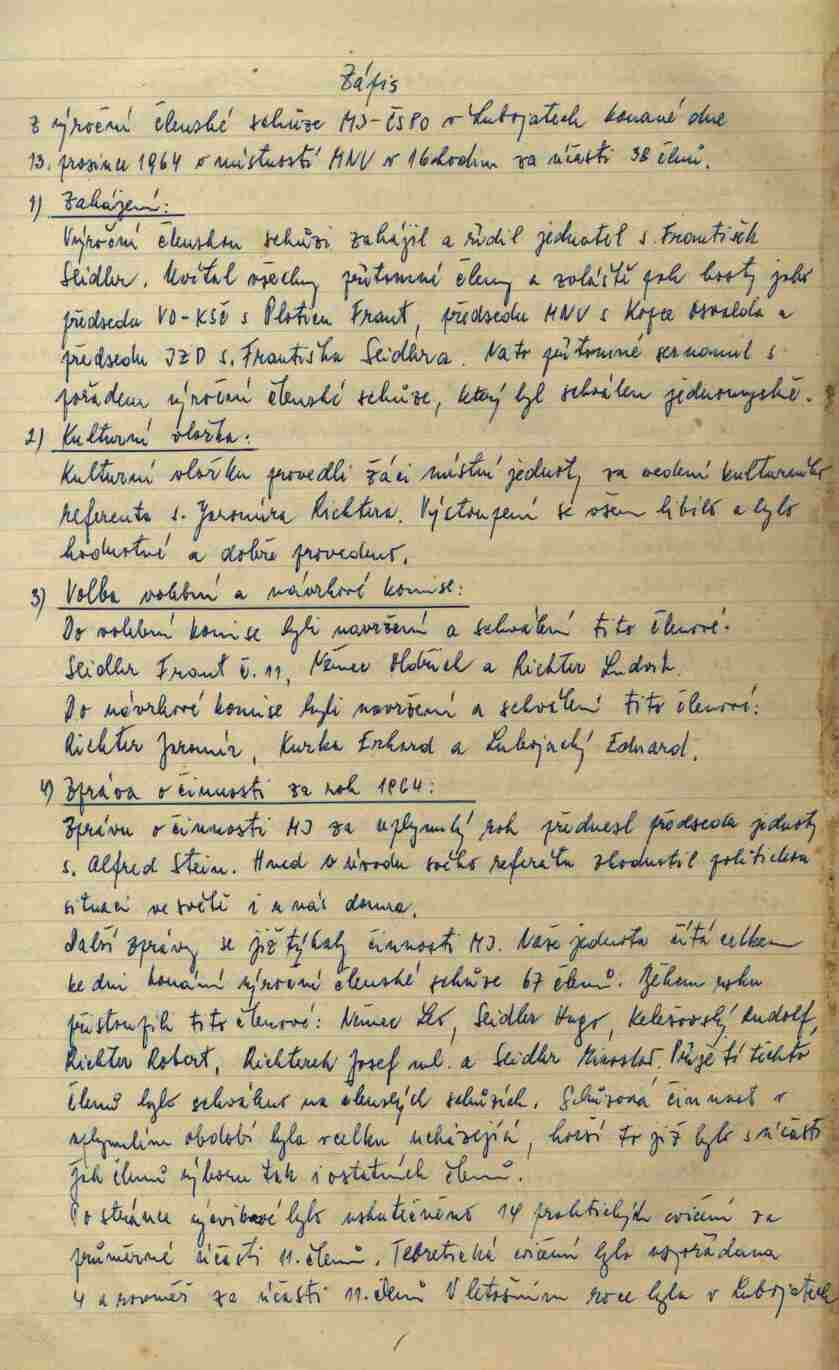 Zápis
z výroční členské schůze MJ-ČSPO v Lubojatech konané dne
13. prosince 1964 v místnosti MNV v 16 hodin za účasti 38 členů.
1) Zahájení:
Výroční členskou schůzi zahájil a řídil jednatel s. František
Seidler. Uvítal všechny přítomné členy a zvláště pak hosty jako
předsedu VO-KSČ s Plotven Frant, předsedu MNV s Kopce Osvalda a
předsedu JZD s. Františka Seidlera. Na to přítomné seznámil s
pořadem výroční členské schůze, který byl schválen jednomyslně.
2) Kulturní vložka:
Kulturní vložku provedli žáci místní jednoty za vedení kulturního
referenta s. Jaromíra Richtera. Výstoupení se všem líbilo a bylo
hodnotné a dobře provedeno.
3) Volba volební a návrhové komise:
Do volební komise byli navrženi a schváleni tito členové:
Seidler Frant č. 11, Němec Oldřich a Richter Ludvík.
Do návrhové komise byli navrženi a schváleni tito členové:
Richter Jaromír, Kurka Erhard a Lubojacký Eduard.
4) Zpráva o činnosti za rok 1964:
Zprávu o činnosti MJ za uplynulý rok přednesl předseda jednoty
s. Alfred Stein. Hned v úvodu svého referátu zhodnotil politickou
situaci ve světě i u nás doma.
Další zprávy se již týkaly činnosti MJ. Naše jednota čítá celkem
ke dni konání výroční členské schůze 67 členů. Během roku
přistoupili tito členové: Němec Leo, Seidler Hugo, Kelešovský Rudolf,
Richter Robert, Richterek Josef ml. a Seidler Miroslav. Přijetí těchto
členů bylo schváleno na členských schůzích. Schůzová činnost v
uplynulém období byla vcelku ucházející, horší to již bylo s účastí
jak členů výboru tak i ostatních členů.
Po stránce výcvikové bylo uskutečněno 14 praktických cvičení za
průměrné účasti 11. členů. Teoretická cvičení bylo uspořádana
4 a rovněž za účasti 11. členů V letošním roce byla v Lubojatech